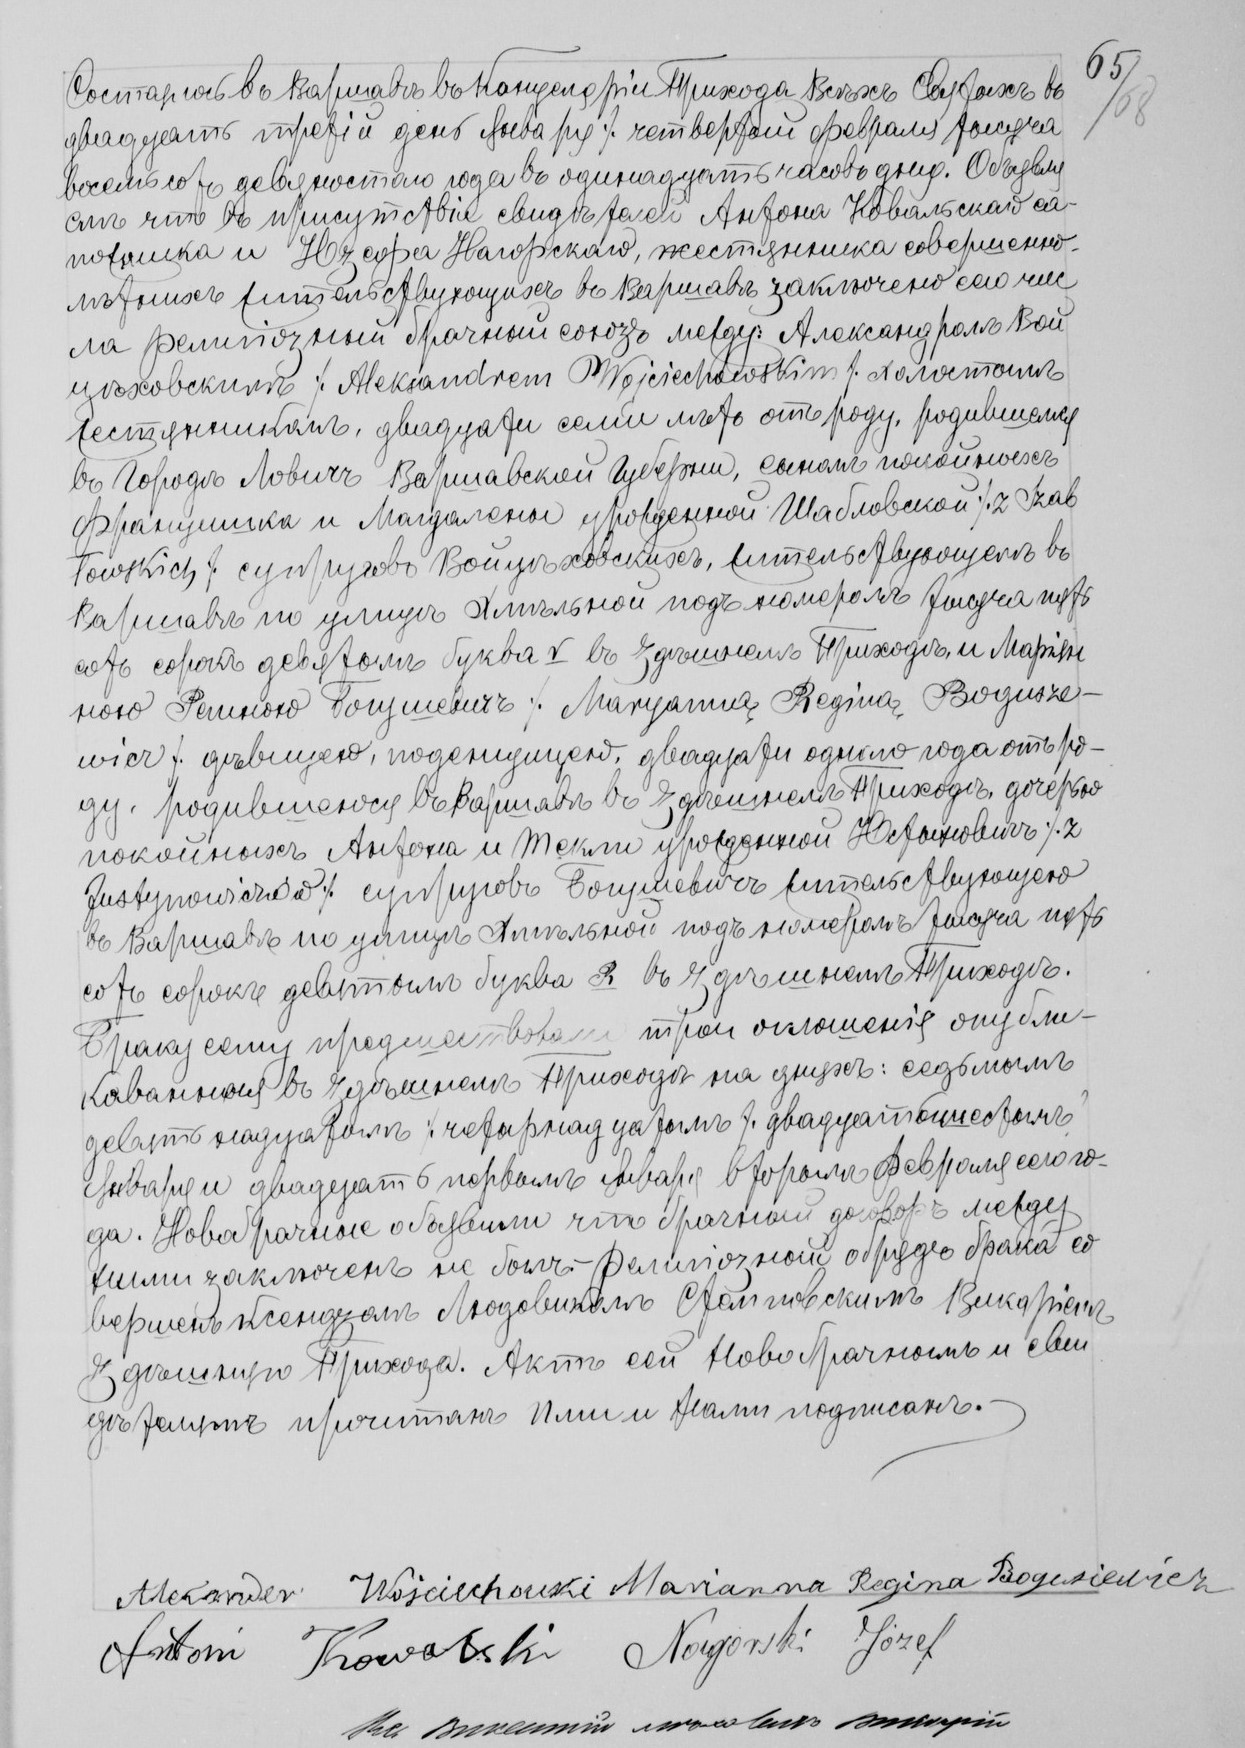 65/68
Состоялось въ Варшавѣ въ Канцеляріи Прихода Всѣхъ Святыхъ въ
двадцать третій день Января /: четвертый Февраля тысяча
восемьсотъ девяностаго года въ одинадцать часовъ дня. Объявля
емъ что въ присутствіи свидѣтелей Антона Ковальскаго са-
пожника и Юзефа Нагорскаго, жестянника совершенно-
лѣтнихъ жительствующихъ въ Варшавѣ заключено сего чис
ла религіозный брачный союзъ между: Александромъ Вой
цѣховскимъ /: Aleksandrem Wojciechowskim /: холостымъ
жестянникомъ, двадцати семи лѣтъ отъ роду, родившемся
въ Городѣ Ловичѣ Варшавской Губерніи, сыномъ покойныхъ
Францишка и Магдалены урожденной Шабловской /: z Szab
łowskich /: супруговъ Войцѣховскихъ, жительствующемъ въ
Варшавѣ по улицѣ Хмѣльной подъ номеромъ тысяча пять
сотъ сорокъ девятымъ буква в здѣшнемъ Приходѣ, и Маріян
ною Региною Богушевичъ /: Maryanną Reginą Bogusze-
wicz /: дѣвицею, поденщицею, двадцати одного года отъ ро-
ду, родившеюся въ Варшавѣ въ здѣшнемъ Приходѣ, дочерью
покойныхъ Антона и Текли урожденной Юстыновичъ /: z
Justynowiczów /: супруговъ Богушевичъ жительствующею
въ Варшавѣ по улицѣ Хмѣльной подъ номеромъ тысяча пять
сотъ сорокъ девятымъ буква R въ здѣшнемъ Приходѣ.
Браку сему предшествовали трои оглашенія опубли-
кованныя въ здѣшнемъ Приходѣ на дняхъ: седьмымъ
девятьнадцатымъ /: четырнадцатымъ /: двадцатьшестымъ
Января и двадцать первымъ января вторымъ Февраля сего го-
да. Новобрачные объявили что брачный договоръ между
ними заключенъ не былъ. Религіозный обрядъ брака со
вершенъ Ксендзомъ Людовикомъ Стемповскимъ Викаріемъ
здѣшняго Прихода. Актъ сей Новобрачнымъ и сви
дѣтелямъ прочитанъ Ими и Нами подписанъ.
Alexander Wojciechowski Marianna Regina Bogusiewicz
Antoni Kowalski Nagorski Józef
Кс. Викентій викарій